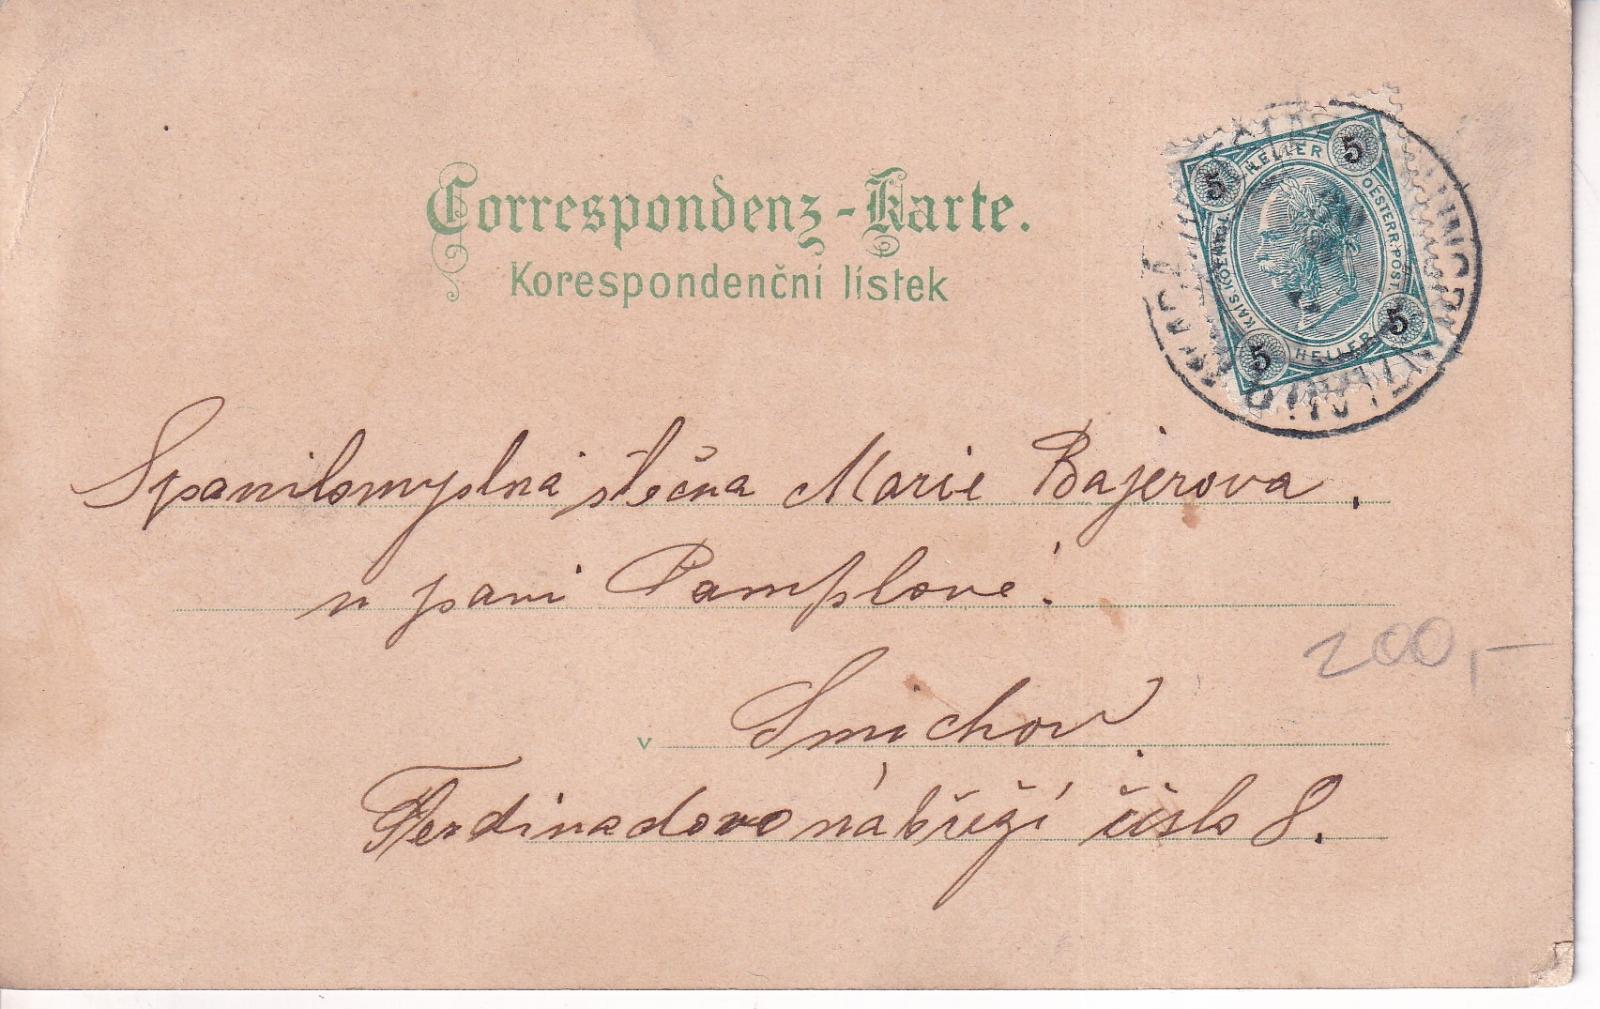 Correspondenz-Karte.
Korespondenční lístek
5 HELLER 5
KAIS. KOENIGL. OESTERR. POST.
5 HELLER 5
Spanilomyslná slečna Marie Bajerova,
u paní Pamplové.
v Smíchov
Ferdinadovo nábřeží číslo 8.
200,-